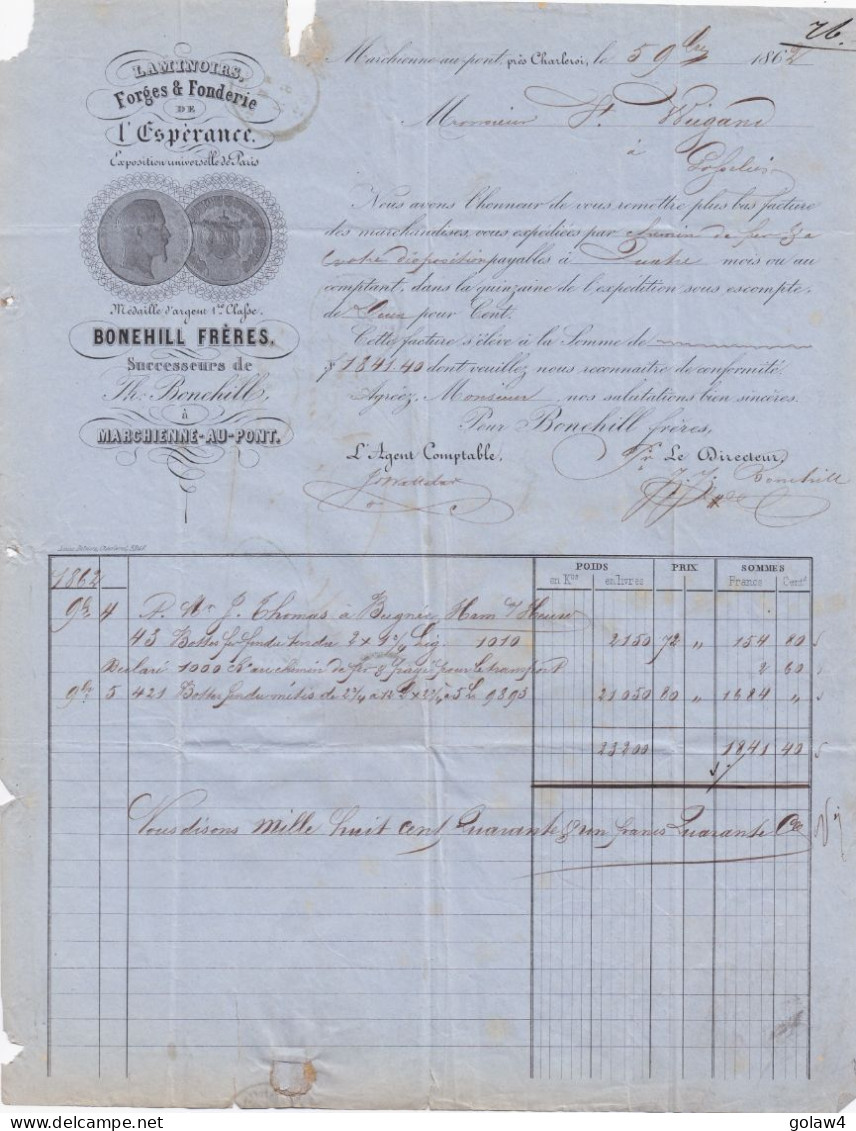 76.
LAMINOIRS,
Forges & Fonderie
DE
l'Espérance.
Exposition universelle de Paris
Médaille d'argent 1re Classe.
BONEHILL FRÈRES,
Successeurs de
Th. Bonehill,
à
MARCHIENNE-AU-PONT.
Marchienne-au-pont, près Charleroi, le 5 9bre 1862
Monsieur Wiegand
à
Gosselies
Nous avons l'honneur de vous remettre plus bas facture
des marchandises, vous expédiées par chemin de fer & a
votre disposition payables à Quatre mois ou au
comptant, dans la quinzaine de l'expédition sous escompte
de deux pour Cent.
Cette facture s'élève à la Somme de
f 1841.40 dont veuillez nous reconnaitre de conformité.
Agréez, Monsieur nos salutations bien sincères.
Pour Bonehill frères,
L'Agent Comptable, Pr Le Directeur,
J. J. Bonehill
POIDS PRIX SOMMES
en Kos en livres Francs Cents
1862
9b 4 A Mr J. Thomas à Beignée Ham s/ Heure
43 Bottes fer fendu tendre 2 x 4 lig 1010 2150 72 " 154 80
Déclaré 1000 au chemin de fer & payé pour le transport 2 60
9b 5 421 Bottes fendu métis de 9395 21050 80 " 1684 "
23200 1841 40
Nous disons Mille huit cent Quarante & un francs Quarante Ces
golaw4